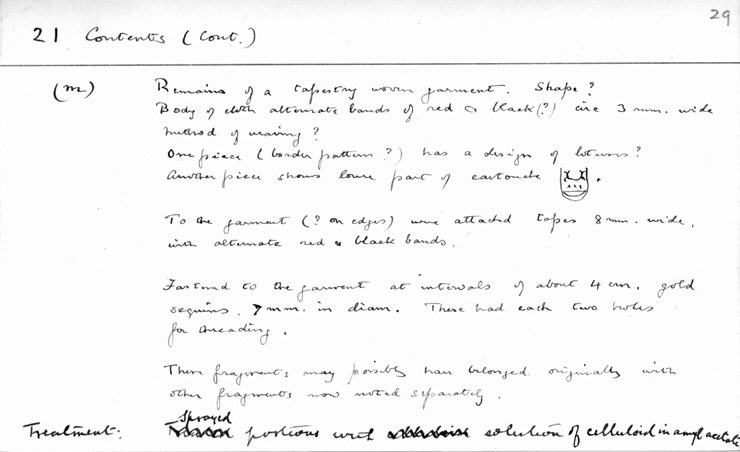 29
21 Contents (Cont.)
(m) Remains of a tapestry woven garment. Shape?
Body of cloth alternate bands of red & black (?) circ 3 mm. wide
Method of weaving?
One piece (border pattern?) has a design of lotuses?
Another piece shows lower part of cartouche .
To the garment (? on edges) were attached tapes 8 mm. wide,
with alternate red & black bands.
Fastened to the garment at intervals of about 4 cm. gold
sequins, 7 mm. in diam. These had each two holes
for threading.
These fragments may possibly have belonged originally with
other fragments now noted separately.
Sprayed
Treatment: portions with solution of celluloid in amyl acetate